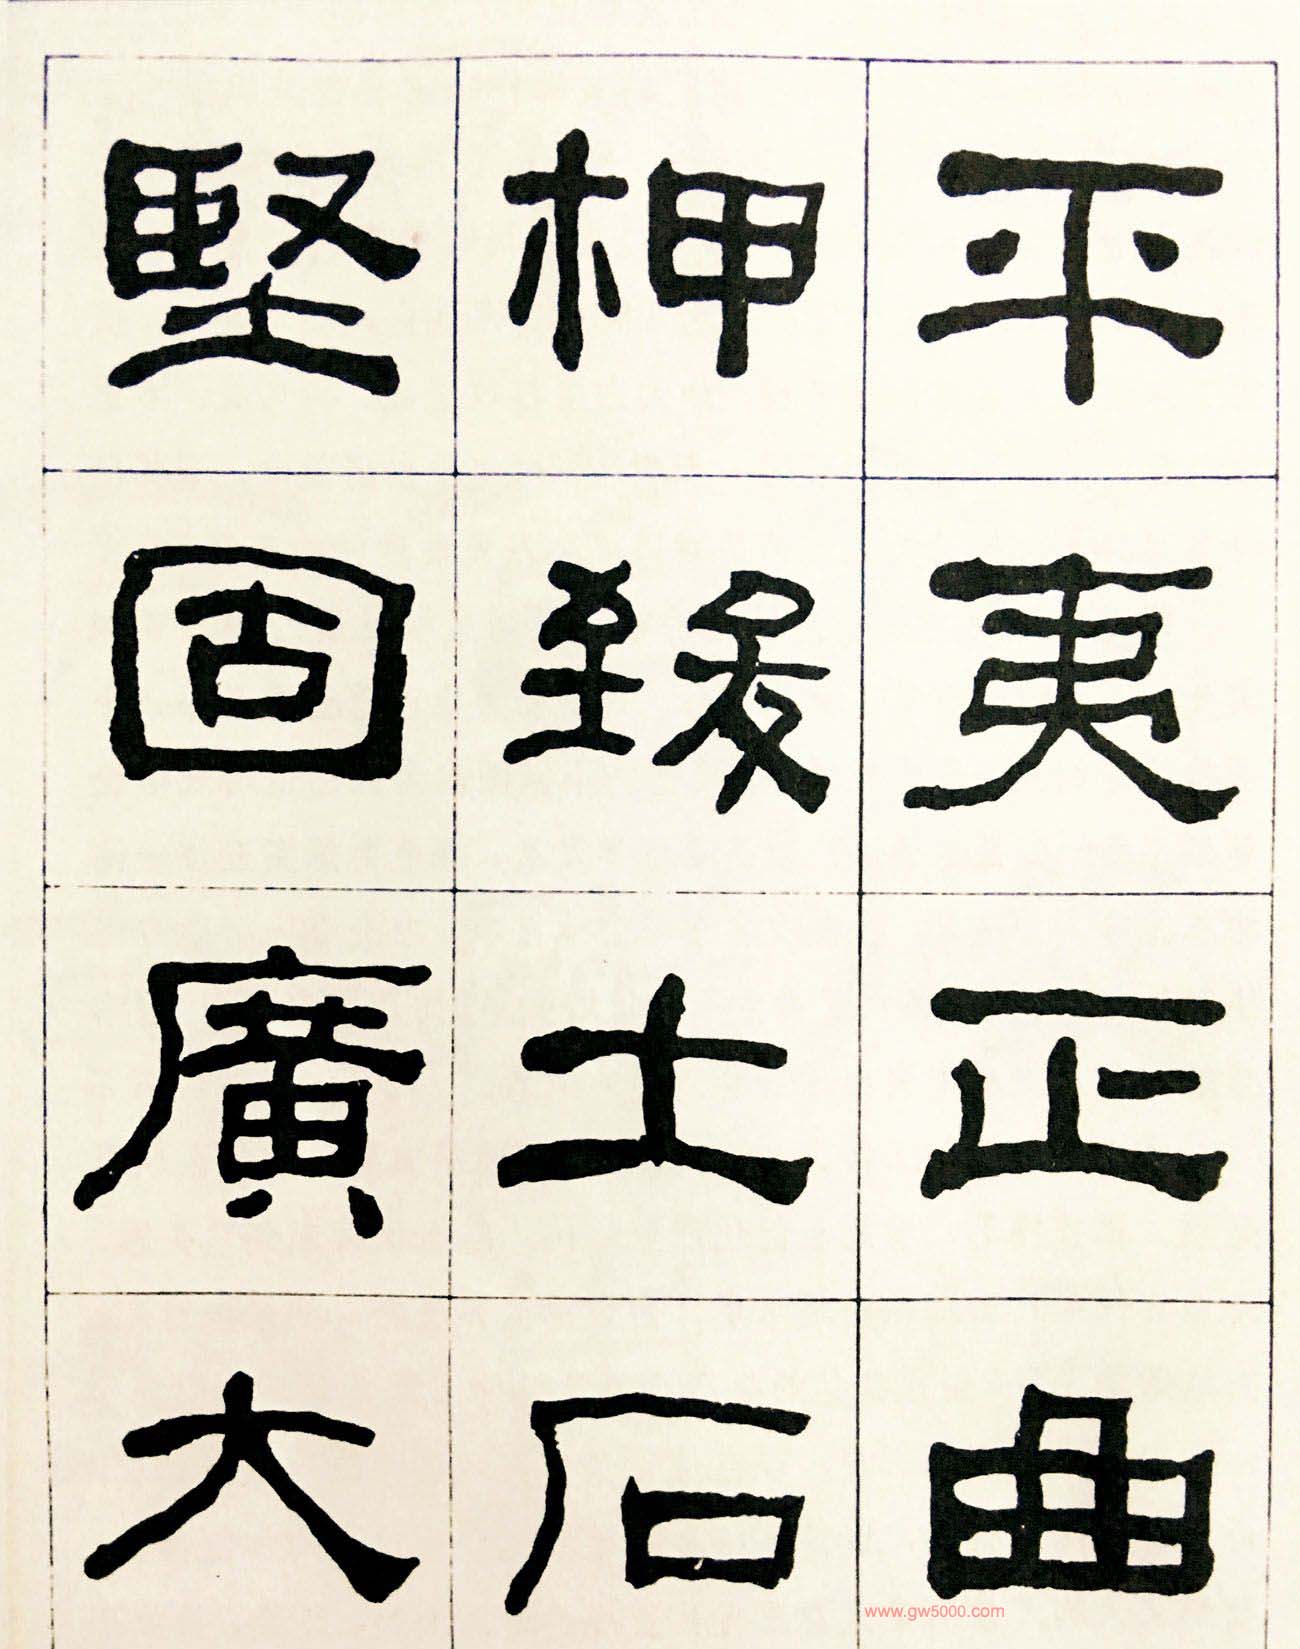 平夷正曲
柙致土石
堅固廣大
www.gw5000.com